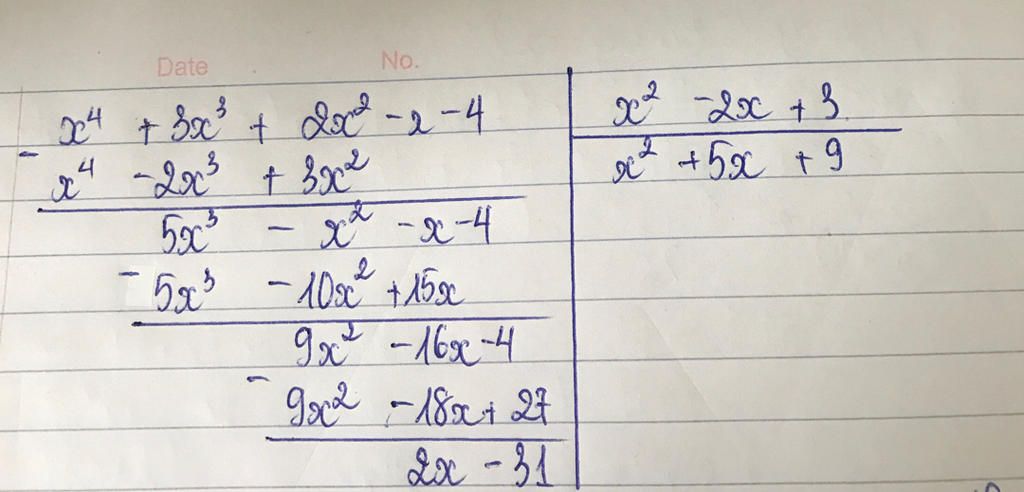 Date No.
x⁴ + 3x³ + 2x² - x - 4
x² - 2x + 3
- x⁴ - 2x³ + 3x²
x² + 5x + 9
5x³ - x² - x - 4
- 5x³ - 10x² + 15x
9x² - 16x - 4
- 9x² - 18x + 27
2x - 31